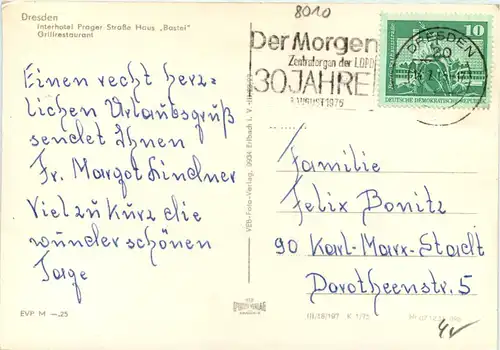 Dresden
Interhotel Prager Straße Haus „Bastei"
Grillrestaurant
8010
Der Morgen
Zentralorgan der LDPD
30 JAHRE
AUGUST 1975
DRESDEN
20
10
DEUTSCHE DEMOKRATISCHE REPUBLIK
Einen recht herz-
lichen Urlaubsgruß
sendet Ihnen
Fr. Margot Lindner
Viel zu kurz die
wunderschönen
Tage
VEB-Foto-Verlag, 9934 Erlbach i. V.
Familie
Felix Bonitz
90 Karl-Marx-Stadt
Dorotheenstr. 5
EVP M —.25
III/18/197 K 1/75